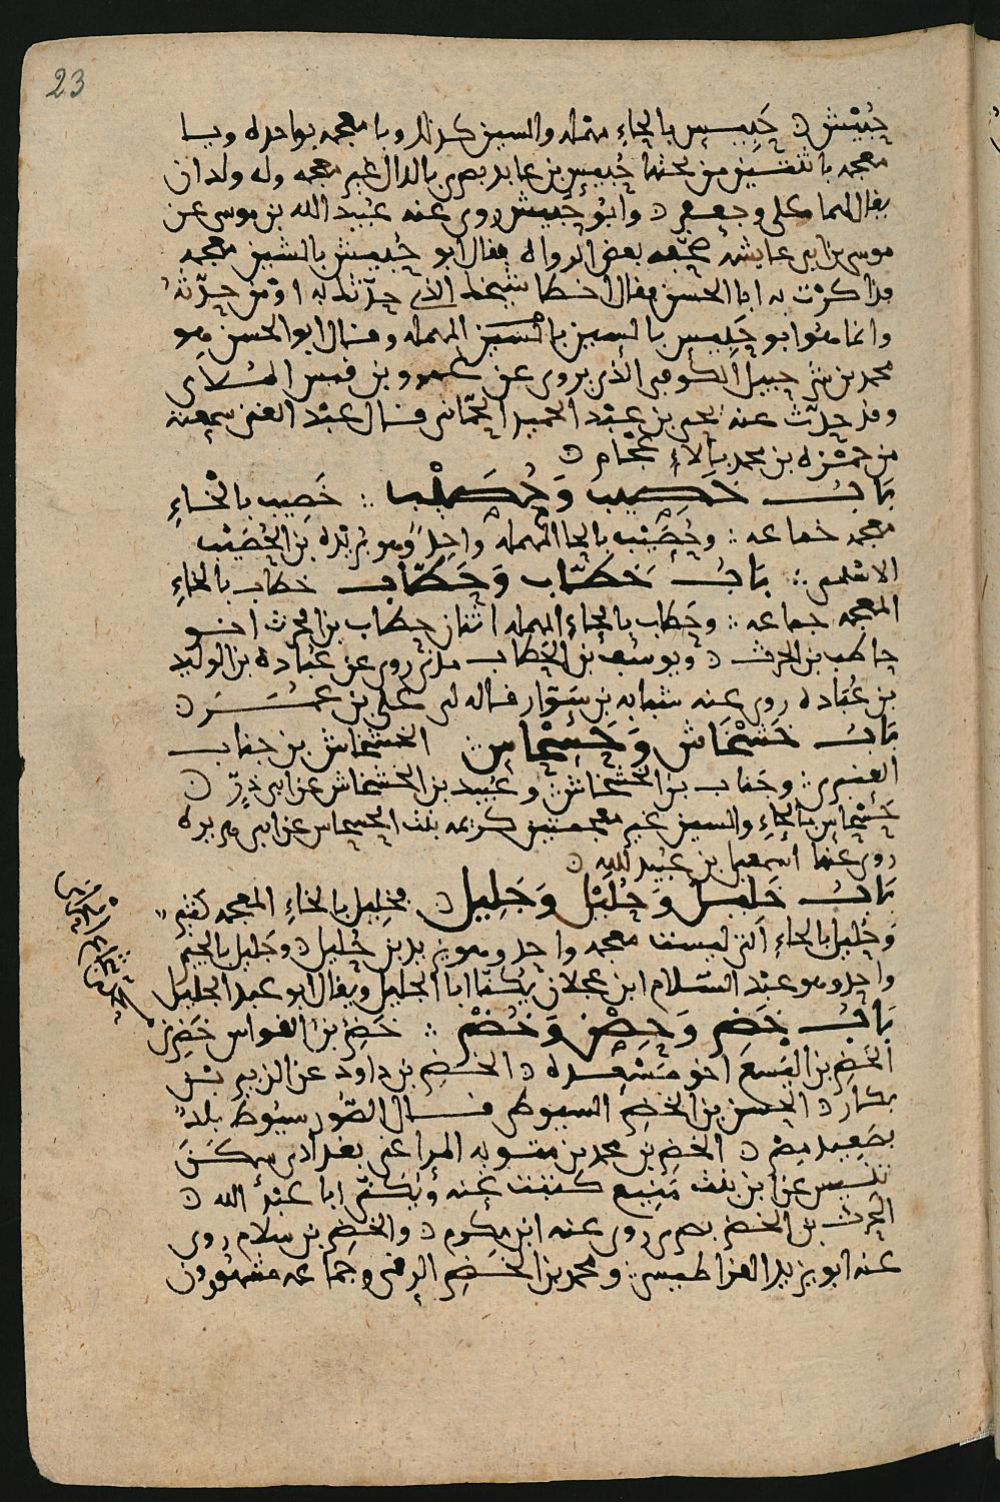 23
حُبَيْش ۞ حَبِيس بالحاءِ مهمله والسين كذلك وبا معجمه بواحده ويا
معجمه باثنتين من تحتها حُبَيس بن عابد بصرى بالدال غير معجمه وله ولدان
يقال لهما على وجعفر ۞ وابو حَبيش روى عنه عُبيد الله بن موسى عن
موسى بن ابى عايشه صحّفه بعض الرواه فقال ابو حُبيش بالشين معجمه
فذاكرْت به ابا الحسن فقال اخطا شيخك الذى حدّثك به اوْ من حدّثهُ
وانما هُوَ ابو حَبِيس بالسين بالسين المهمله وقال ابو الحسن هو
محمد بن شرحبيل الكوفى الذى يروى عن عمرو بن قيس الملاى
وقد حدّث عنه يحيى بن عبْد الحميد الحمّانى قال عبْد الغنى سمعته
من حمْزه بن محمد بالاعجام ۞
بَابُ خَصِيب وَحُصَيْب ∴ خَصِيب بالخاءِ
معجمه جماعه ∴ وحُصَيْب بالحا المهمله واحدٌ وهو بُرَيْده بن الحُصَيْب
الاسْلمى ∴ بَابُ خَطّاب وَحَطّاب خطاب بالخاءِ
المعجمه جماعه ∴ وحَطاب بالحاءِ المهمله اثنان حطاب بن الحرث اخو
حاطب بن الحرث ۞ ويوسف بن الحَطاب مدنى روى عن عُبَاده بن الوليد
بن عُبَاده روى عنه شبابه بن سَوّار قاله لى على بن عُمَر ۞
بَابُ خَشْخَاش وَحَسْحَاس الخشخاش بن جناب
العنبرى ∴ وجَناب بن الخشخاش ∴ وعُبيد بن الخشخاش عن ابى ذرٍّ ۞
حَسْحَاس بالحاءِ والسين غير معجمتين كريمه بنت الحسحاس عن ابى هريره
روى عنها اسمعيل بن عبيد الله ۞
بَابُ خَلِيل وَحُلَيْل وَجَلِيل ۞ فخلِيل بالخاءِ المعجمه كثيرٌ
وَحُليل بالحاءِ التى ليست معجمه واحد وهو يزيد بن حُليل ۞ وجَليل بالجيم
واحد وهو عبْد السّلام ابن عجلان يُكنّا ابا الجليل ويقال ابو عبد الجليل
بَابُ خَضِر وَحِصْن وَخُضْر ∴ خَضِر بن القواس خَضِر
الخَضِر بن الْيَسعَ اخو مَسْعَده ۞ الخَضِر بن داود عن الزبير بن
بكار ۞ الحسن بن الخَضِر السيوطى قال الصّورى سيُوط بلدٌ
بصَعِيد مِصر ۞ الخضر بن محمد بن متويه المراغى بغدادى سكنَ
تنيس عن ابن بنت مَنِيع كتبت عنه وَيُكنّى ابا عبْد الله ۞
الحرث بن الخضر بصرى روى عنه ابن مكرم ۞ والخضر بن سلام روى
عنه ابو يزيد القراطيسى ∴ ومحمد بن الخَضِر الرقى وجماعه مشهُورون